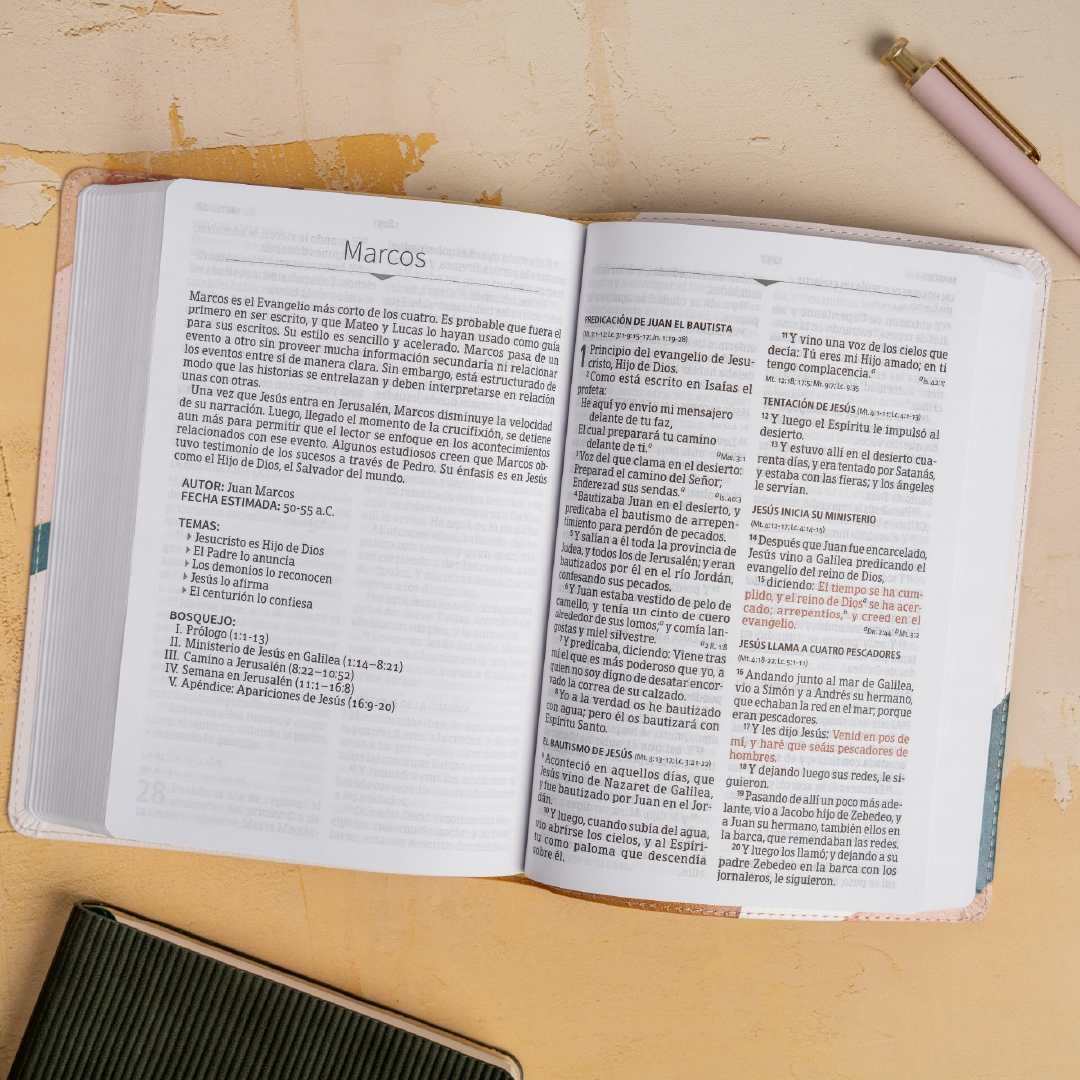 Marcos
Marcos es el Evangelio más corto de los cuatro. Es probable que fuera el
primero en ser escrito, y que Mateo y Lucas lo hayan usado como guía
para sus escritos. Su estilo es sencillo y acelerado. Marcos pasa de un
evento a otro sin proveer mucha información secundaria ni relacionar
los eventos entre sí de manera clara. Sin embargo, está estructurado de
modo que las historias se entrelazan y deben interpretarse en relación
unas con otras.
Una vez que Jesús entra en Jerusalén, Marcos disminuye la velocidad
de su narración. Luego, llegado el momento de la crucifixión, se detiene
aun más para permitir que el lector se enfoque en los acontecimientos
relacionados con ese evento. Algunos estudiosos creen que Marcos ob-
tuvo testimonio de los sucesos a través de Pedro. Su énfasis es en Jesús
como el Hijo de Dios, el Salvador del mundo.
AUTOR: Juan Marcos
FECHA ESTIMADA: 50-55 a.C.
TEMAS:
Jesucristo es Hijo de Dios
El Padre lo anuncia
Los demonios lo reconocen
Jesús lo afirma
El centurión lo confiesa
BOSQUEJO:
I. Prólogo (1:1-13)
II. Ministerio de Jesús en Galilea (1:14–8:21)
III. Camino a Jerusalén (8:22–10:52)
IV. Semana en Jerusalén (11:1–16:8)
V. Apéndice: Apariciones de Jesús (16:9-20)
PREDICACIÓN DE JUAN EL BAUTISTA
(Mt. 3:1-12; Lc. 3:1-9; 15-17; Jn. 1:19-28)
1 Principio del evangelio de Jesu-
cristo, Hijo de Dios.
2 Como está escrito en Isaías el
profeta:
He aquí yo envío mi mensajero
delante de tu faz,
El cual preparará tu camino
delante de ti.a
a Mal. 3:1
3 Voz del que clama en el desierto:
Preparad el camino del Señor;
Enderezad sus sendas.a
a Is. 40:3
4 Bautizaba Juan en el desierto, y
predicaba el bautismo de arrepen-
timiento para perdón de pecados.
5 Y salían a él toda la provincia de
Judea, y todos los de Jerusalén; y eran
bautizados por él en el río Jordán,
confesando sus pecados.
6 Y Juan estaba vestido de pelo de
camello, y tenía un cinto de cuero
alrededor de sus lomos;a y comía lan-
gostas y miel silvestre.
a 2 R. 1:8
7 Y predicaba, diciendo: Viene tras
mí el que es más poderoso que yo, a
quien no soy digno de desatar encor-
vado la correa de su calzado.
8 Yo a la verdad os he bautizado
con agua; pero él os bautizará con
Espíritu Santo.
EL BAUTISMO DE JESÚS (Mt. 3:13-17; Lc. 3:21-22)
9 Aconteció en aquellos días, que
Jesús vino de Nazaret de Galilea,
y fue bautizado por Juan en el Jor-
dán.
10 Y luego, cuando subía del agua,
vio abrirse los cielos, y al Espíri-
tu como paloma que descendía
sobre él.
11 Y vino una voz de los cielos que
decía: Tú eres mi Hijo amado; en ti
tengo complacencia.a
a Is. 42:1;
Mt. 12:18; 17:5; Mr. 9:7; Lc. 9:35
TENTACIÓN DE JESÚS (Mt. 4:1-11; Lc. 4:1-13)
12 Y luego el Espíritu le impulsó al
desierto.
13 Y estuvo allí en el desierto cua-
renta días, y era tentado por Satanás,
y estaba con las fieras; y los ángeles
le servían.
JESÚS INICIA SU MINISTERIO
(Mt. 4:12-17; Lc. 4:14-15)
14 Después que Juan fue encarcelado,
Jesús vino a Galilea predicando el
evangelio del reino de Dios,
15 diciendo: El tiempo se ha cum-
plido, y el reino de Diosa se ha acer-
cado; arrepentíos,b y creed en el
evangelio.
a Dn. 2:44 b Mt. 3:2
JESÚS LLAMA A CUATRO PESCADORES
(Mt. 4:18-22; Lc. 5:1-11)
16 Andando junto al mar de Galilea,
vio a Simón y a Andrés su hermano,
que echaban la red en el mar; porque
eran pescadores.
17 Y les dijo Jesús: Venid en pos de
mí, y haré que seáis pescadores de
hombres.
18 Y dejando luego sus redes, le si-
guieron.
19 Pasando de allí un poco más ade-
lante, vio a Jacobo hijo de Zebedeo, y
a Juan su hermano, también ellos en
la barca, que remendaban las redes.
20 Y luego los llamó; y dejando a su
padre Zebedeo en la barca con los
jornaleros, le siguieron.